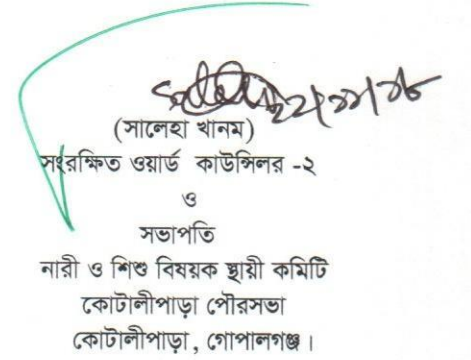 ২২/১১/১৮
(সালেহা খানম)
সংরক্ষিত ওয়ার্ড কাউন্সিলর -২
ও
সভাপতি
নারী ও শিশু বিষয়ক স্থায়ী কমিটি
কোটালীপাড়া পৌরসভা
কোটালীপাড়া, গোপালগঞ্জ।